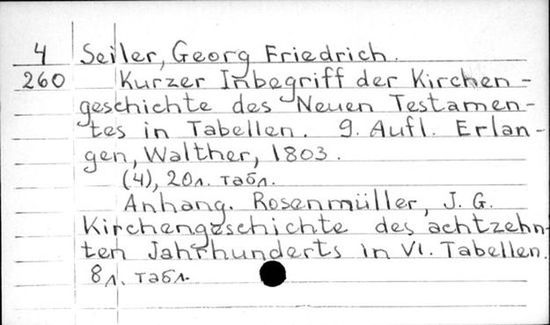 4 Seiler, Georg Friedrich.
260 Kurzer Inbegriff der Kirchen-
geschichte des Neuen Testamen-
tes in Tabellen. 9. Aufl. Erlan-
gen, Walther, 1803.
(4), 20л. табл.
Anhang. Rosenmüller, J. G.
Kirchengeschichte des achtzehn-
ten Jahrhunderts in VI. Tabellen.
8л. табл.